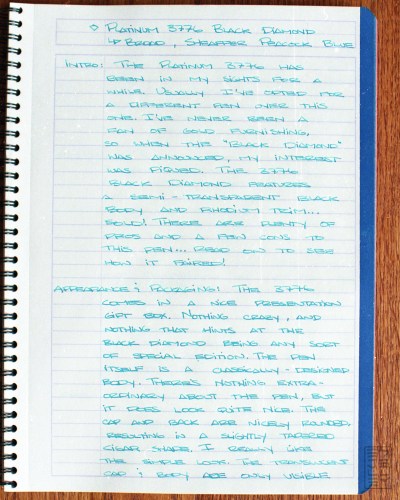 ◇ Platinum 3776 Black Diamond
↳ Broad, Sheaffer Peacock Blue
Intro: The Platinum 3776 has
been in my sights for a
while. Usually I've opted for
a different pen over this
one. I've never been a
fan of gold furnishing,
so when the "Black Diamond"
was announced, my interest
was piqued. The 3776
Black Diamond features
a semi-transparent black
body and rhodium trim...
Sold! There are plenty of
pros and a few cons to
this pen... Read on to see
how it faired!
Appearance & Packaging: The 3776
comes in a nice presentation
gift box. Nothing crazy, and
nothing that hints at the
Black Diamond being any sort
of special edition. The pen
itself is a classically-designed
body. There's nothing extra-
ordinary about the pen, but
it does look quite nice. The
cap and back are nicely rounded
resulting in a slightly tapered
cigar shape. I really like
the simple look. The translucent
cap & body are only visible